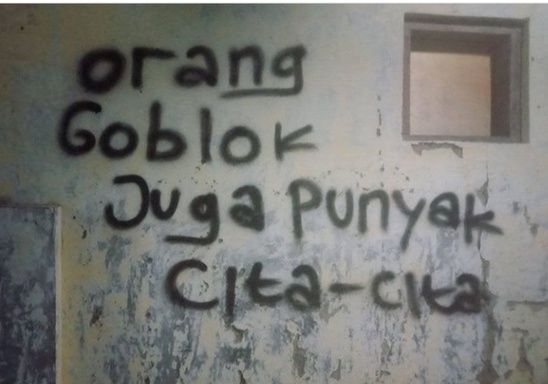 orang
Goblok
Juga Punyak
Cita-cita